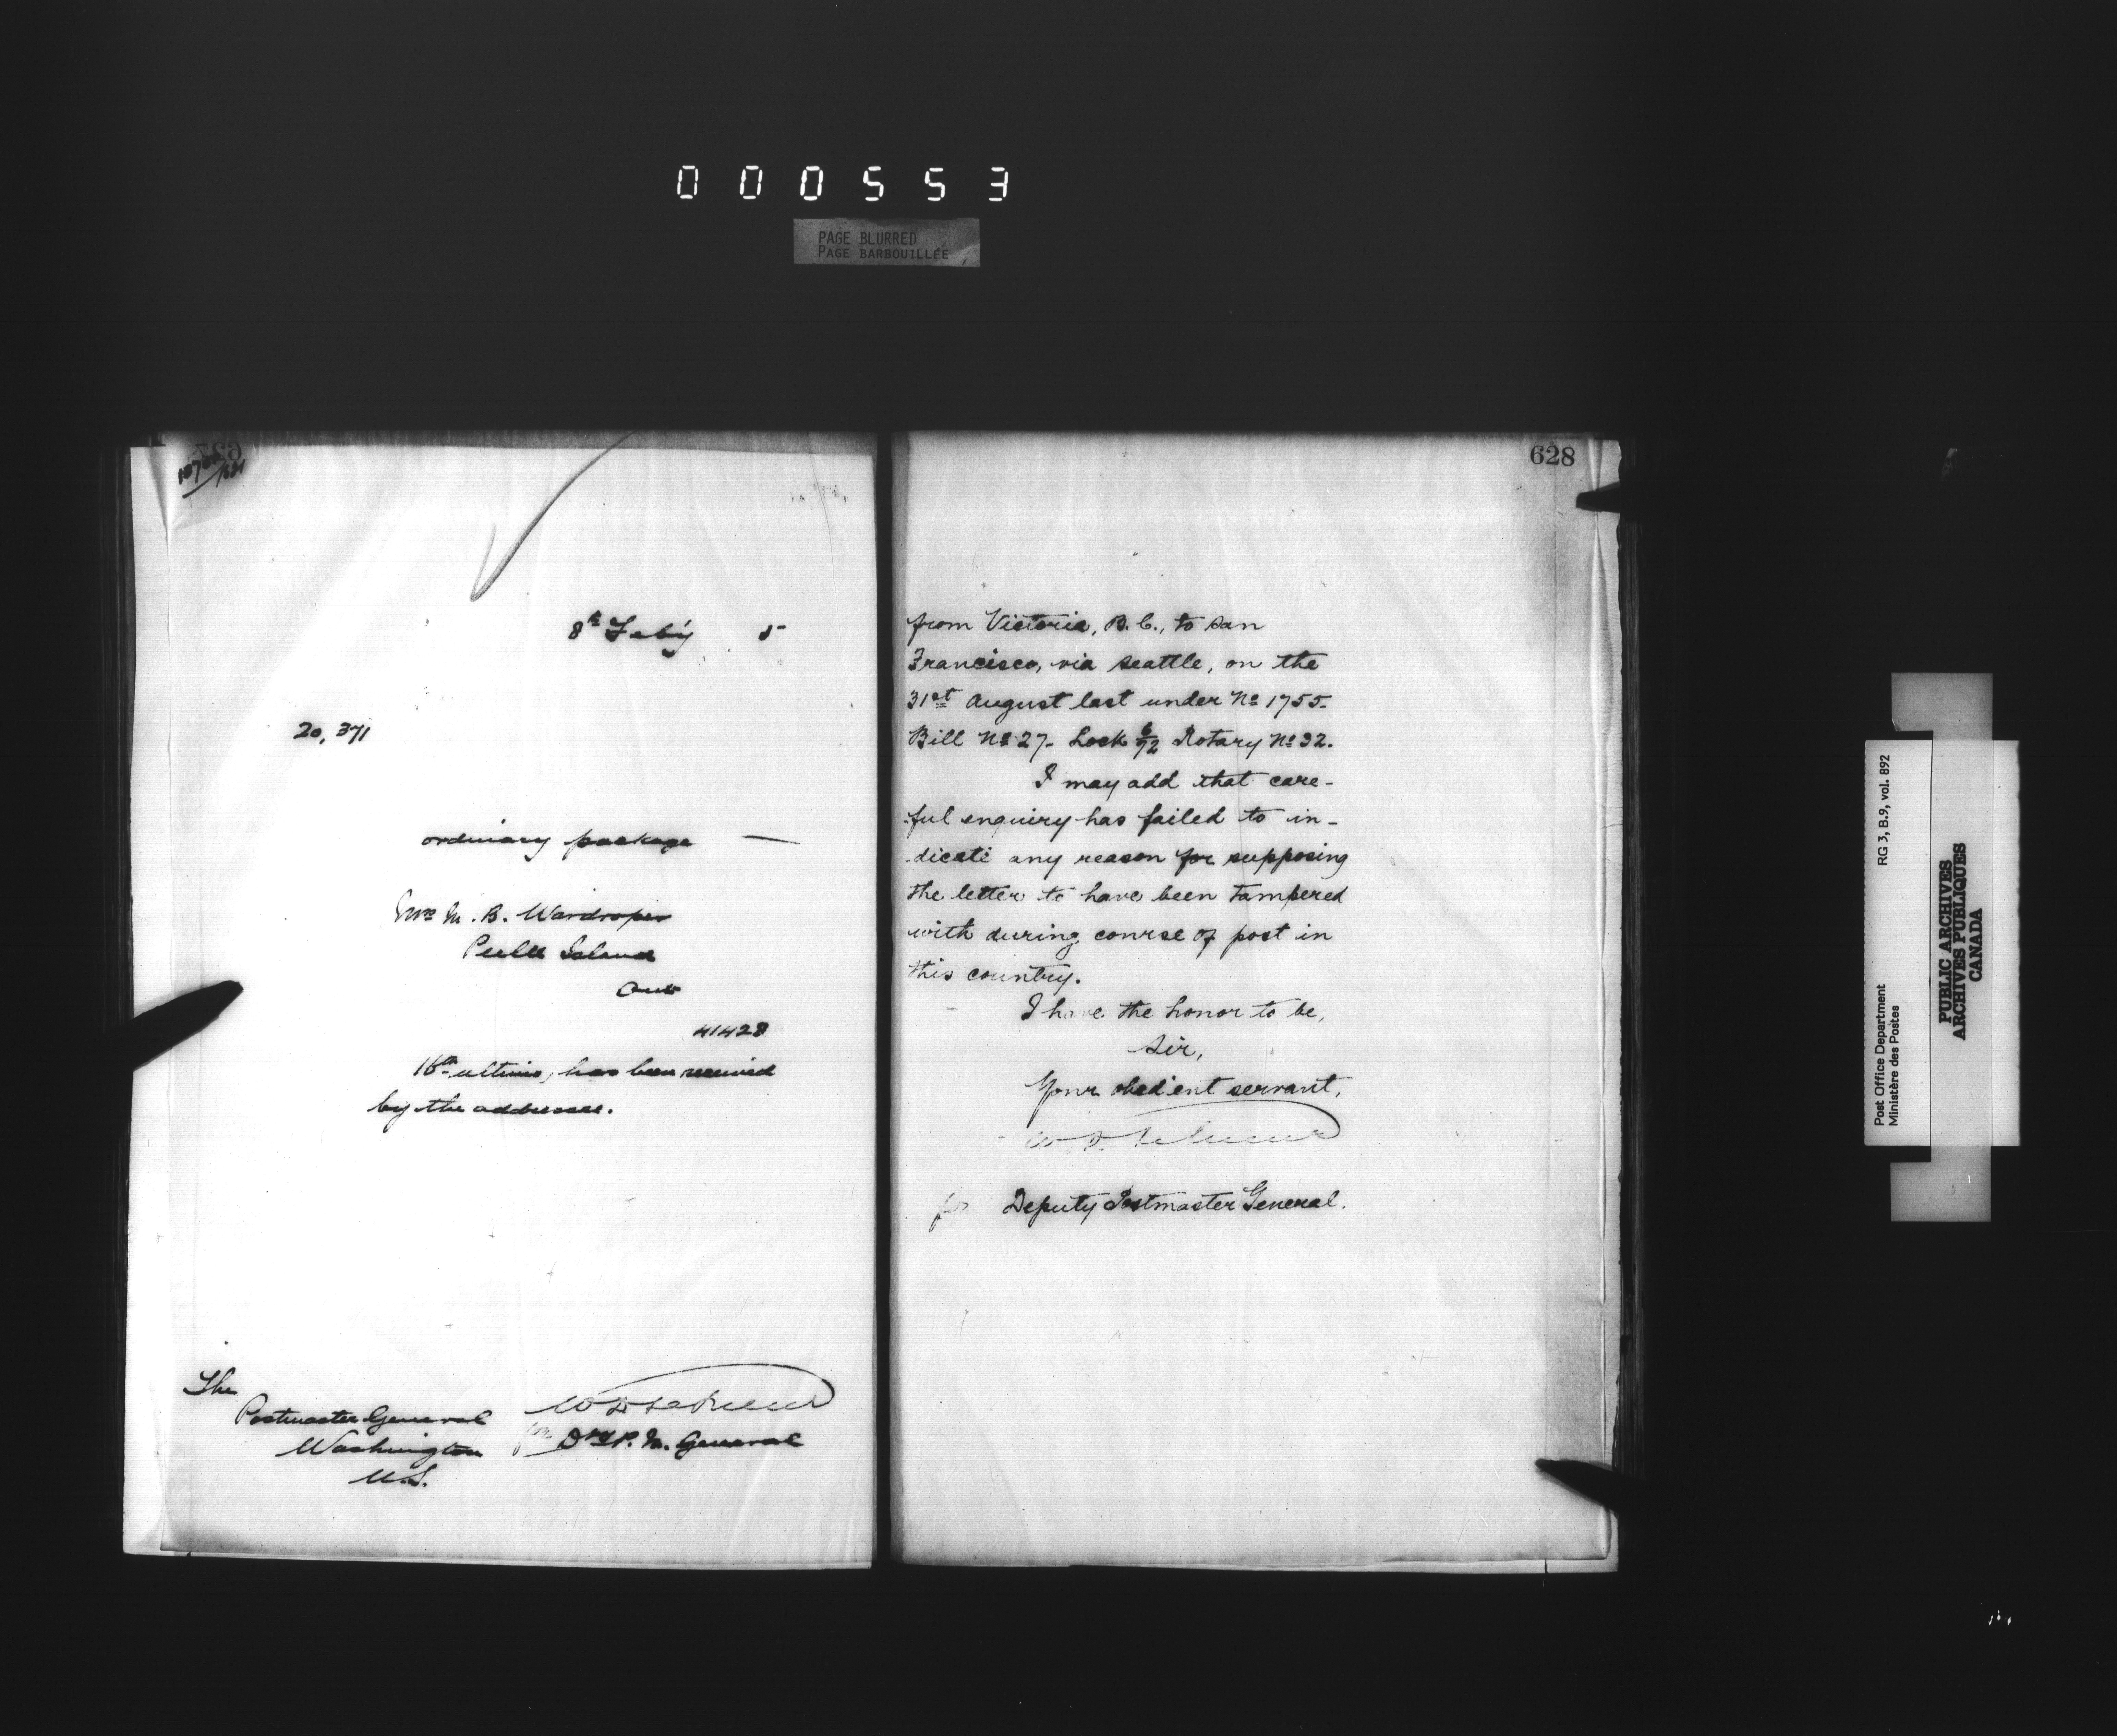 000553
PAGE BLURRED
PAGE BARBOUILLÉE
8th Feby 5
20,371
ordinary package —
Mrs M. B. Wardroper
Island
Ont
41428
16th ultimo, has been received
by the addressee.
The
Postmaster General
Washington
U.S.
for Dy P. M. General
628
from Victoria, B.C., to San
Francisco, via Seattle, on the
31st August last under No 1755.
Bill No 27. Lock 6/92 Rotary No 32.
I may add that care-
ful enquiry has failed to in-
dicate any reason for supposing
the letter to have been tampered
with during course of post in
this country.
I have the honor to be,
Sir,
Your obedient servant,
for Deputy Postmaster General.
Post Office Department
Ministère des Postes
RG 3, B.9, vol. 892
PUBLIC ARCHIVES
ARCHIVES PUBLIQUES
CANADA